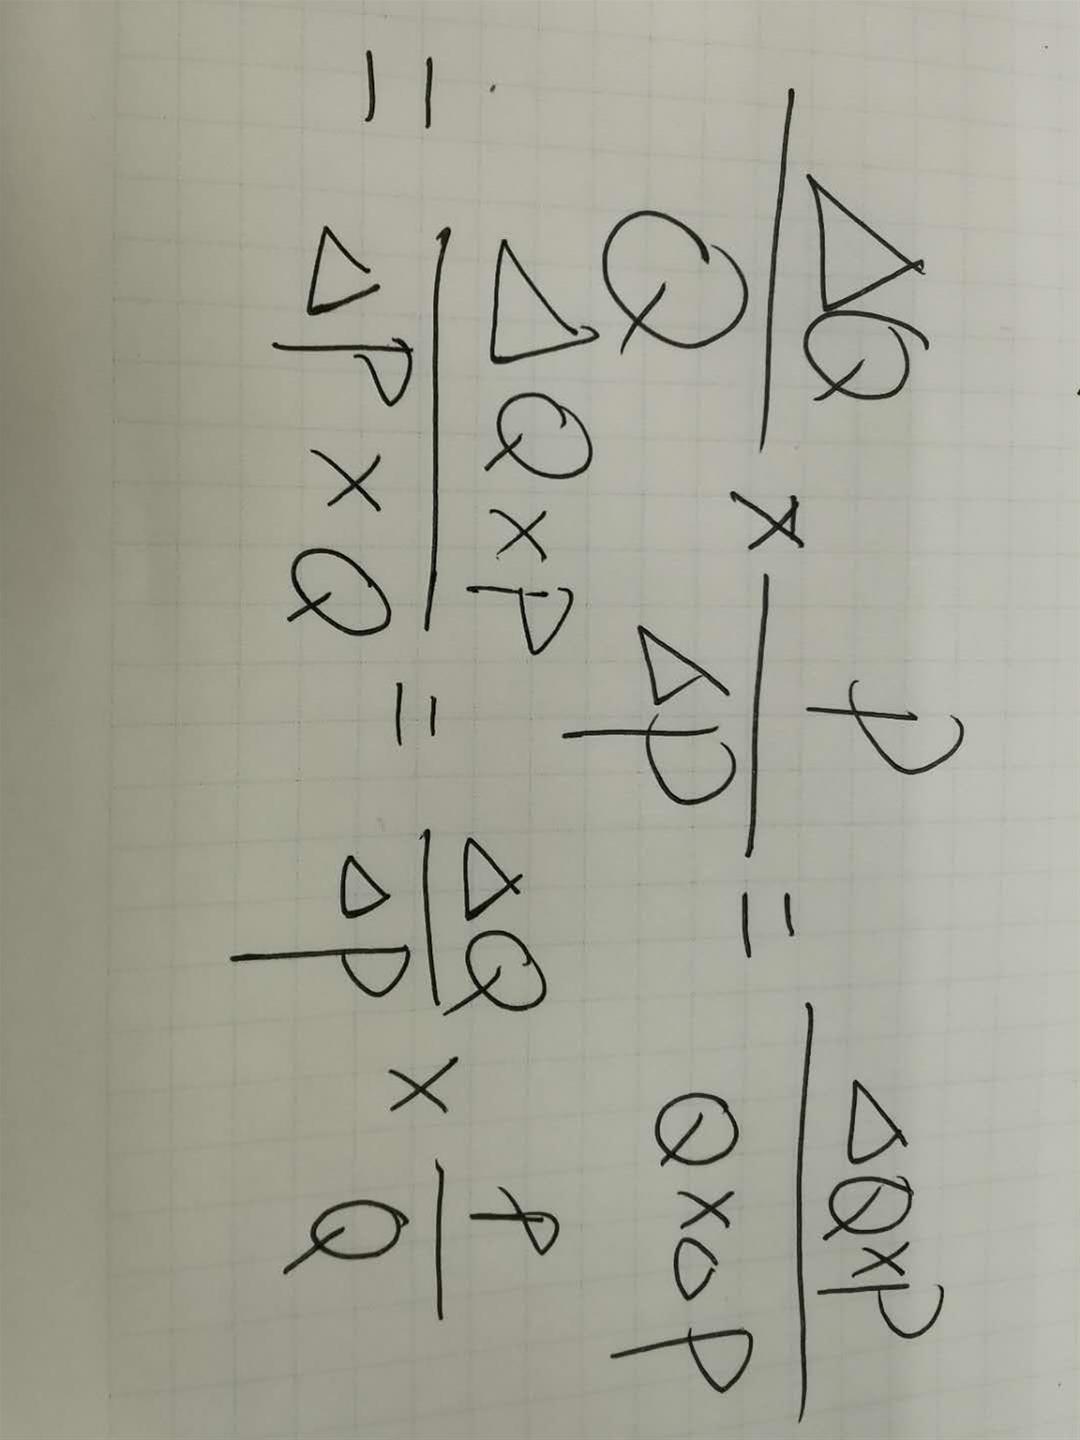 ΔQ/Q × P/ΔP = ΔQ×P/Q×ΔP
= ΔQ×P/ΔP×Q = ΔQ/ΔP × P/Q